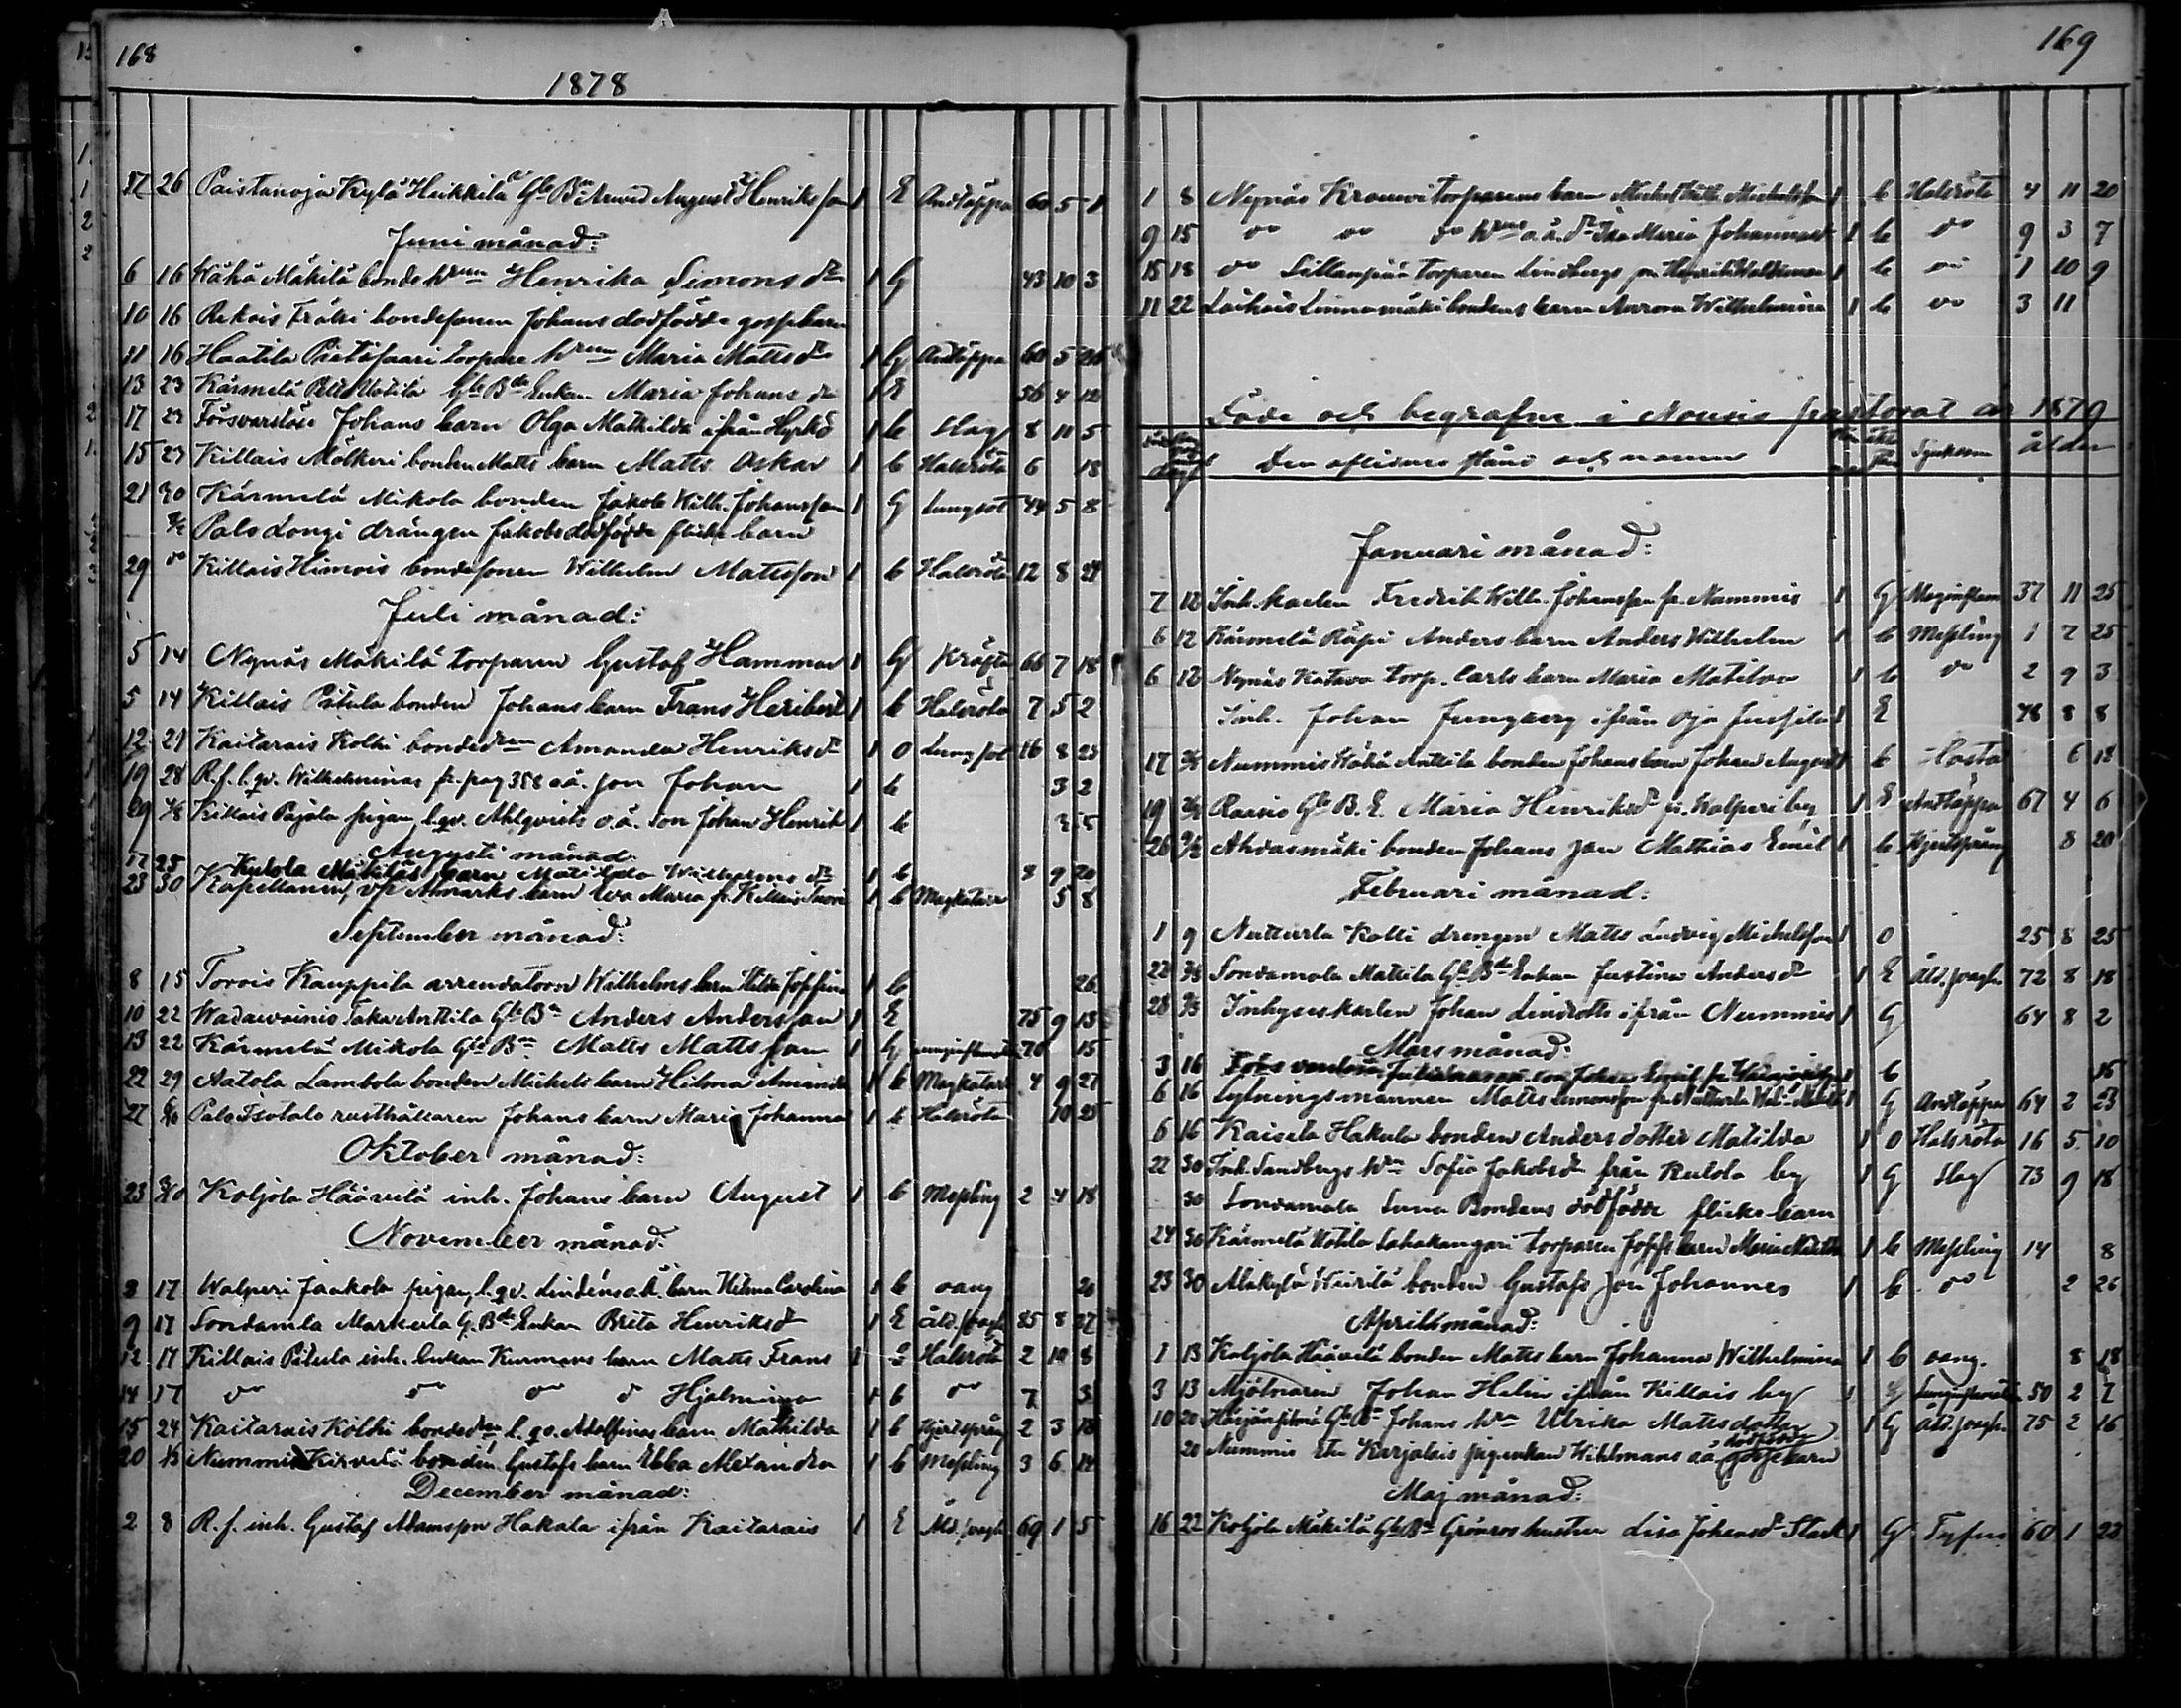 168
1878
17 26 Paistanoja Kylä Heikkilä Gle Bn Arwid August Henriksson 1 E Andtäppa 60 5 1
Juni månad:
6 16 Wähä Mäkilä bonde hrun Henrika Simonsdr 1 G 43 10 3
10 16 Rekois bondesonen Johans dödfödde gossebarn
11 16 Haatila torpare hrun Maria Mattsdr 1 G Andtäppa 60 5 26
13 23 Kärmelä Uotila Gle Bde Enkan Maria Johansdr 1 E 56 4 12
17 23 Försvarslöse Johans barn Olga Mathilda ifrån Hyrkö 1 b Slag 8 11 5
15 23 Killais Mölkeri bonden Matts barn Matts Oskar 1 b Halsröta 6 18
21 30 Kärmelä Mikola bonden Jakob Wilh. Johansson 1 G Lungsot 44 5 8
Palo Longi drängen Jakobs dödfödde flicke barn
29 do Killais Himois bondesonen Wilhelm Mattsson 1 b Halsröta 12 8 29
Juli månad:
5 14 Nynäs Mäkilä torparen Gustaf Hammar 1 G Kräfta 66 7 18
5 14 Killais Pitula bonden Johans barn Frans Heribert 1 b Halsröta 7 5 2
12 21 Kaitarais Kolki bondedrun Amanda Henriksdr 1 O Lungsot 16 8 23
19 28 R.f. l.qv. Wilhelminas fr. pag 358 oä. son Johan 1 b 3 2
29 4/8 Killais Pajala pigan l.qv. Ahlqvists o.ä. Son Johan Henrik 1 b 3 5
Augusti månad
17 25 Kulola Mäkiläs barn Matilda Wilhelmsdr 1 b 8 9 20
23 30 Kapellanen, vp Anmarks barn Eva Maria fr. Killais Tuori 1 b Magkatarr 5 8
September månad:
8 15 Torois Kauppila arrendatorn Wilhelms barn Hilda Josefina 1 b 26
10 22 Wadawainis Taka Anttila Gle Bn Anders Andersson 1 E 75 9 13
13 22 Kärmelä Mikola Gle Bn Matts Mattsson 1 G 70 15
22 29 Aatola Lambola bonden Michels barn Hilma Amanda 1 b Magkatarr 4 9 27
27 6/10 Palo Isotalo rusthållaren Johans barn Maria Johanna 1 b Halsröta 10 25
Oktober månad:
23 Koljola Häävilä inh. Johans barn August 1 b Messling 2 4 18
November månad:
8 17 Walperi Jaakola pigan l.qv. Lindens o.ä. barn Hilma Carolina 1 b oang 20
9 17 Sondamla Markula G. Bde Enkan Brita Henriksdr 1 E Åld.svagh. 85 8 27
12 17 Killais Pitula inh. enkan Kurmans barn Matts Frans 1 b Halsröta 2 10 8
14 17 do do do d Hjalmina 1 b do 7 3
15 24 Kaitarais Kölki bondedrn l.qv. Adolfinas barn Mathilda 1 b Hjertspräng 2 3 18
20 Nummis Kirvelä bonden Gustafs barn Ebba Alexandra 1 b Messling 3 6 14
December månad:
2 8 R.f. inh. Gustaf Adamsson Hakala ifrån Kaitarais 1 E Åld.svagh 69 1 5
169
1 8 Nynäs torparens barn Michel Michelsson 1 b Halsröta 4 11 20
9 15 do do do hrns o.ä. dr Ida Maria Johannad 1 b do 9 3 7
15 18 do Sillanpää torparen Lindbergs son Henrik Waldemar 1 b do 1 10 9
11 22 Laihois Linnamäki bondens barn Aurora Wilhelmina 1 b do 3 11
Döde och begrafne i Nousis pastorat år 1879
Den aflidnes stånd och namn Sjukdom ålder
Januari månad:
7 12 Inh.karlen Fredrik Wilh. Johansson fr. Nummis 1 G Maginflam 37 11 25
6 12 Kärmelä Räpi Anders barn Anders Wilhelm 1 b Messling 1 7 25
6 12 Nynäs Katava torp. Carls barn Maria Matilda 1 b do 2 9 3
Inh. Johan Ljungberg ifrån Oja Jussila 1 E 76 8 8
17 Nummis Wähä Anttila bonden Johans barn Johan August 1 b Hosta 6 18
19 Raisio Gle B. E. Maria Henriksdr fr. Walperi by 1 E Andtäppa 67 4 6
26 9/2 Ahdasmäki bonden Johans son Mathias Emil 1 b Hjertspräng 8 20
Februari månad:
1 9 Nutturla Kolli drengen Matts Ludvig Michelsson 1 O 25 8 25
22 Sondamala Mattila Gle Bde Enkan Justina Andersdr 1 E Åld.svagh. 72 8 18
28 9/3 Inhyseskarlen Johan Lindroth ifrån Nummis 1 G 64 8 2
Mars månad:
3 16 Försvarslösa oä. son Johan Emil fr. 1 b 15
6 16 Lytningsmannen Matts Simonsson fr. Nutturla 1 G Andtäppa 64 2 23
6 16 Kaisela Hakula bonden Anders dotter Matilda 1 O Halsröta 16 5 10
22 30 Inh. Sandbergs hrn Sofia Jakobsdr från Kulola by 1 G Slag 73 9 18
30 Sondamala Luna Bondens dödfödde flicke barn
24 30 Kärmelä Uotila Lahakangari torparen Josefs barn Maria 1 b Messling 14 8
23 30 Alakylä Wiirilä bonden Gustafs son Johannes 1 b do 2 26
Aprill månad:
1 13 Koljola Häävilä bonden Matts barn Johanna Wilhelmina 1 b oang. 8 18
3 13 Mjölnaren Johan Helin ifrån Killais by 1 G 50 2 7
10 20 Gle Bn Johans hrn Ulrika Mattsdotter 1 G Åld.svagh. 75 2 16
20 Nummis Karjalais pigenkan Wihlmans oä dödfödde gossebarn
Maj månad:
16 22 Koljola Mäkilä Gle Bn Grönros hustru Lisa Johansdr Stark 1 G Tyfus 60 1 23